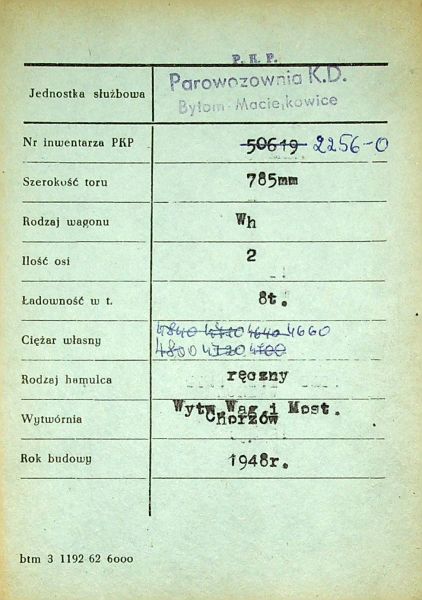 P. K. P.
Jednostka służbowa
Parowozownia K.D.
Bytom-Maciejkowice
Nr inwentarza PKP 50619 2256-0
Szerokość toru 785mm
Rodzaj wagonu Wh
Ilość osi 2
Ładowność w t. 8t.
Ciężar własny 4840 4720 4640 4660
4800 4720 4700
Rodzaj hamulca ręczny
Wytwórnia Wytw. Wag. i Most.
Chorzów
Rok budowy 1948r.
btm 3 1192 62 6000